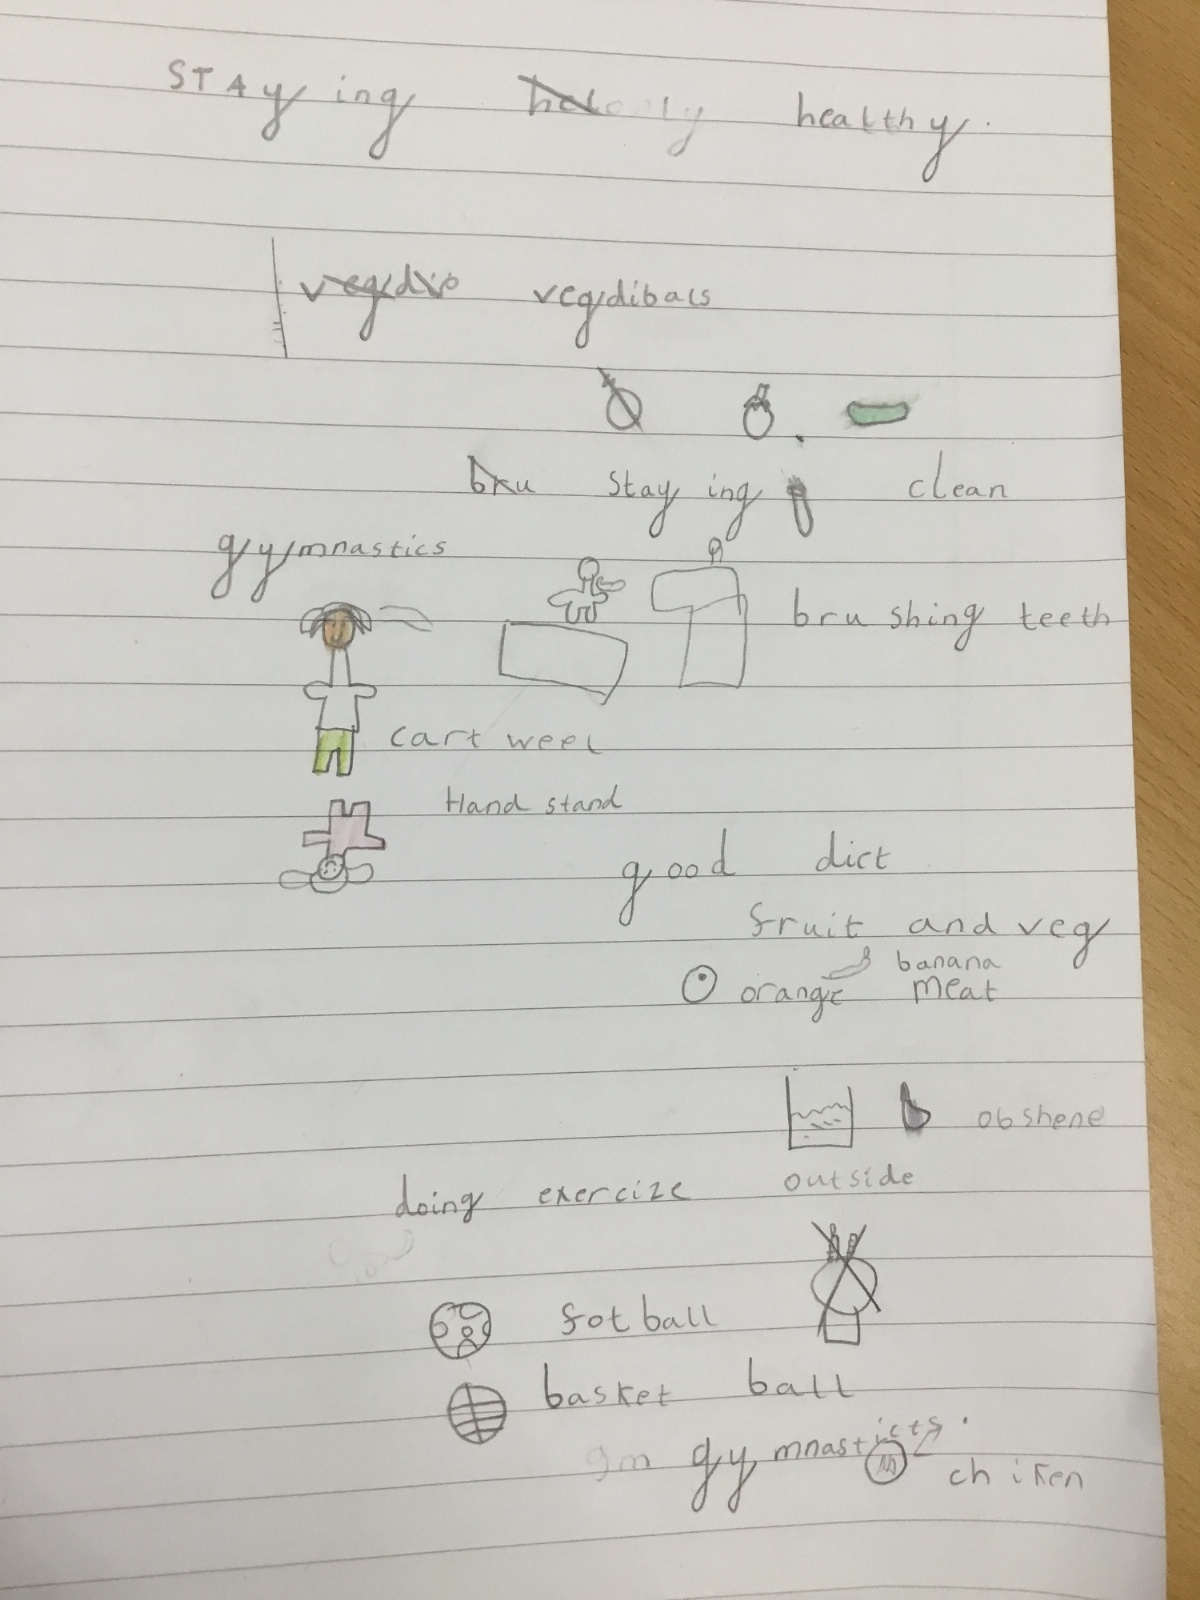 STAying healthy.
vegdibals
staying clean
gymnastics
brushing teeth
cart weel
Hand stand
good diet
fruit and veg
banana
orange meat
obshene
outside
doing exercize
fotball
basket ball
gm gymnasticts.
chiken